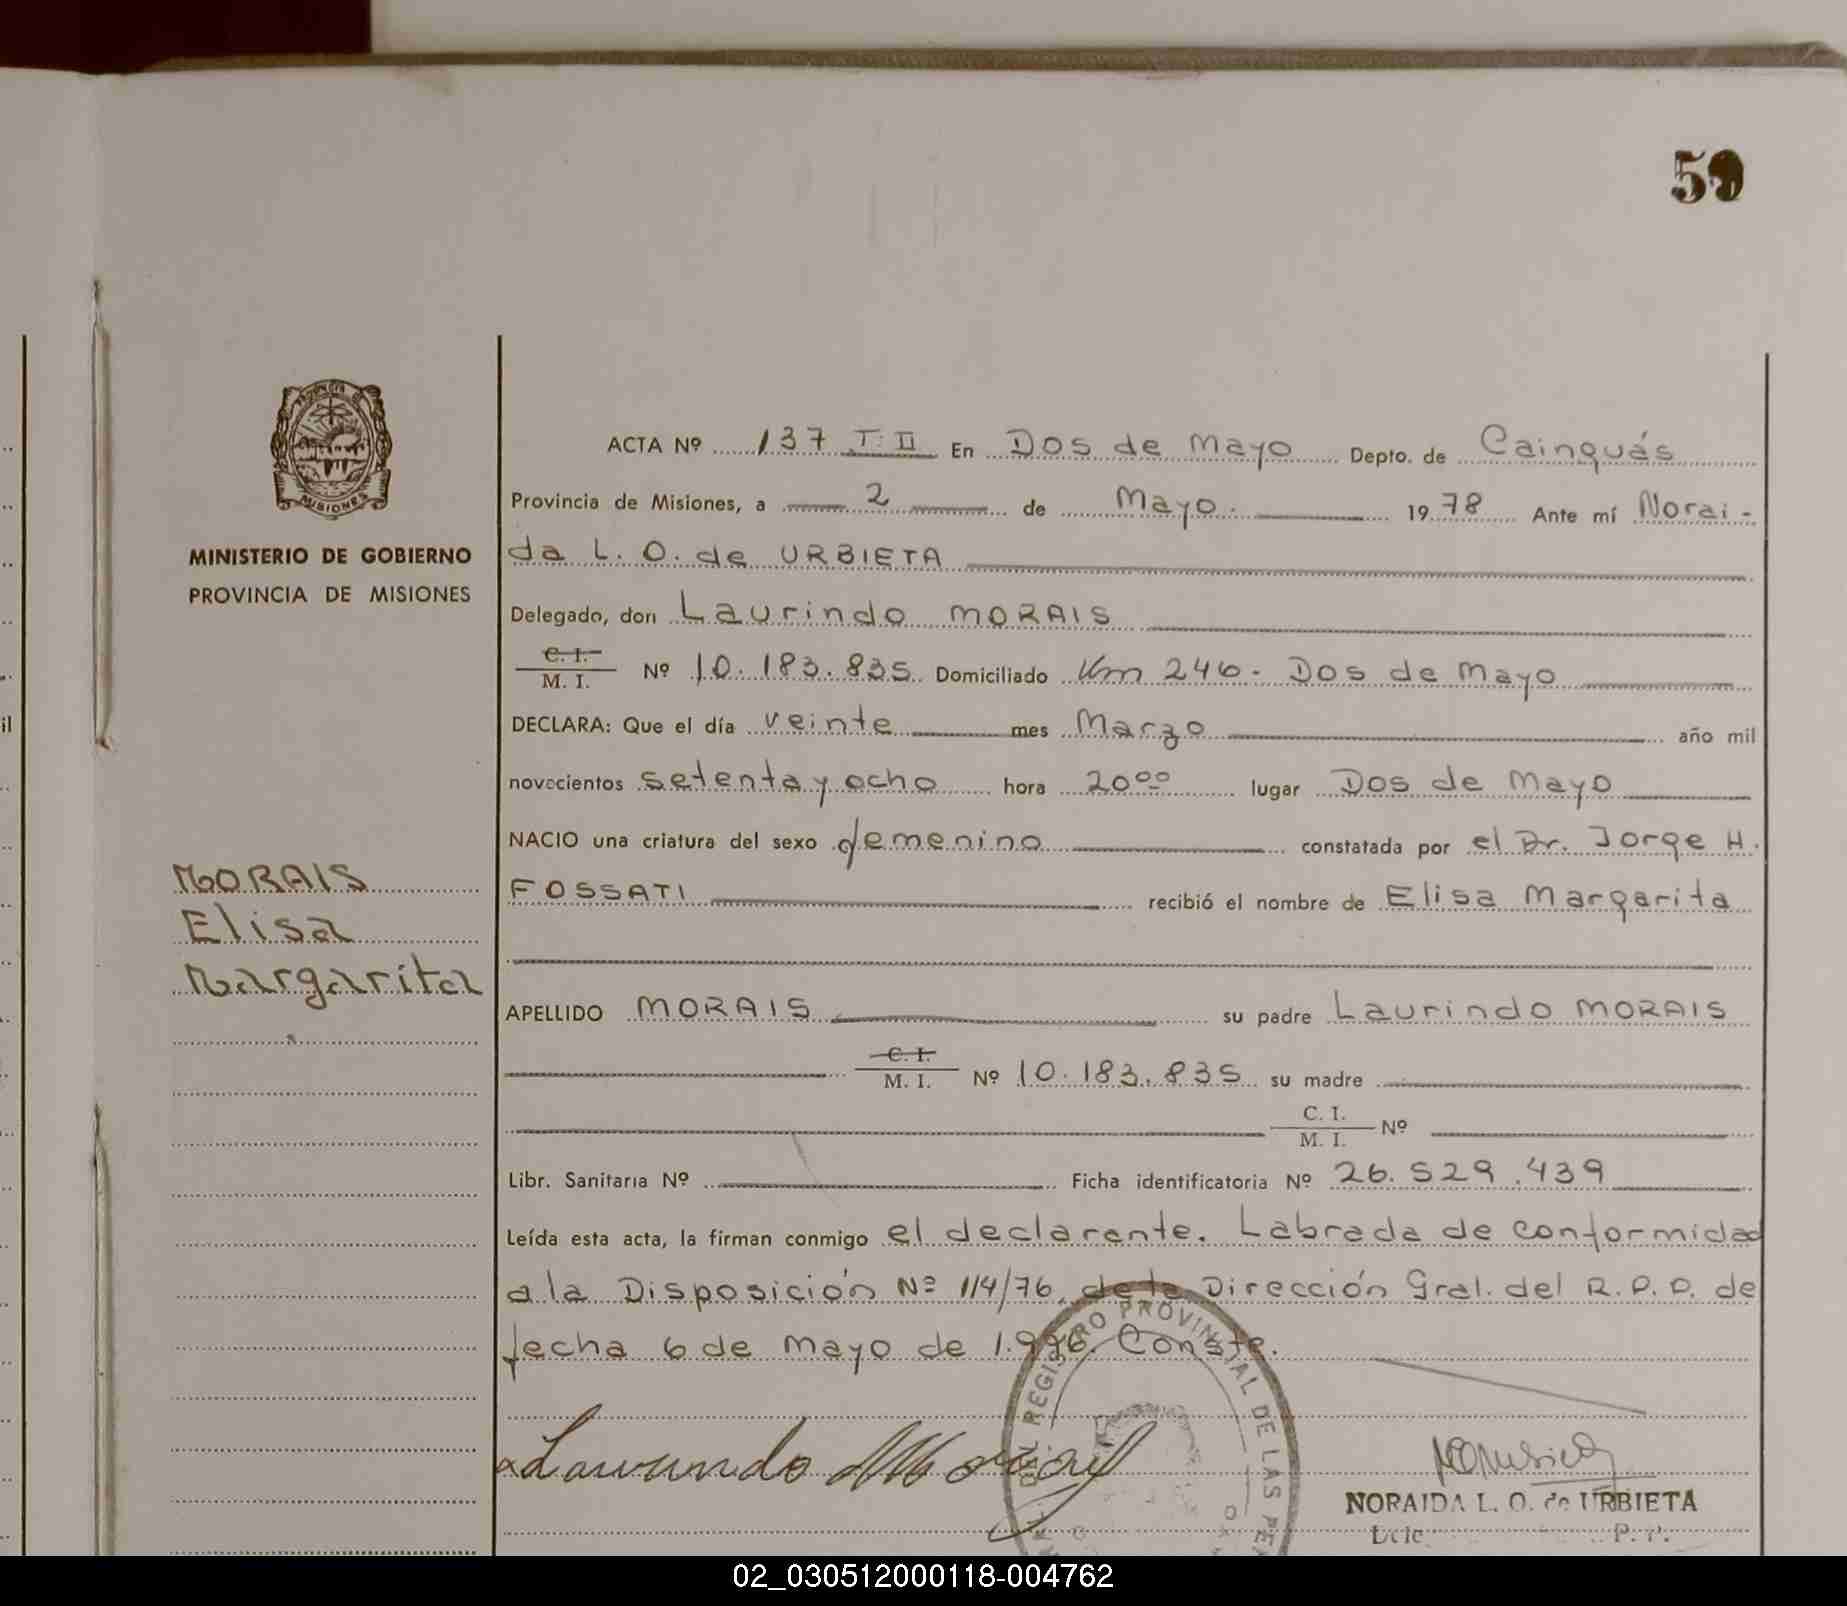 59
PROVINCIA DE
MISIONES
MINISTERIO DE GOBIERNO
PROVINCIA DE MISIONES
MORAIS
Elisa
Margarita
ACTA Nº 137 T: II En Dos de Mayo Depto. de Cainguás
Provincia de Misiones, a 2 de Mayo. 1978 Ante mí Norai-
da L. O. de URBIETA
Delegado, don Laurindo MORAIS
C. I. / M. I. Nº 10.183.835 Domiciliado Km 246- Dos de Mayo
DECLARA: Que el día veinte mes Marzo año mil
novecientos setenta y ocho hora 20⁰⁰ lugar Dos de Mayo
NACIO una criatura del sexo femenino constatada por el Dr. Jorge H.
FOSSATI recibió el nombre de Elisa Margarita
APELLIDO MORAIS su padre Laurindo MORAIS
C. I. / M. I. Nº 10.183.835 su madre
C. I. / M. I. Nº
Libr. Sanitaria Nº Ficha identificatoria Nº 26.529.439
Leída esta acta, la firman conmigo el declarante. Labrada de conformidad
a la Disposición Nº 114/76, de la Dirección Gral. del R.P.P. de
fecha 6 de Mayo de 1.976. Conste.
DEL REGISTRO PROVINCIAL DE LAS PE
Laurindo Morais
NORAIDA L. O. de URBIETA
il
02_030512000118-004762